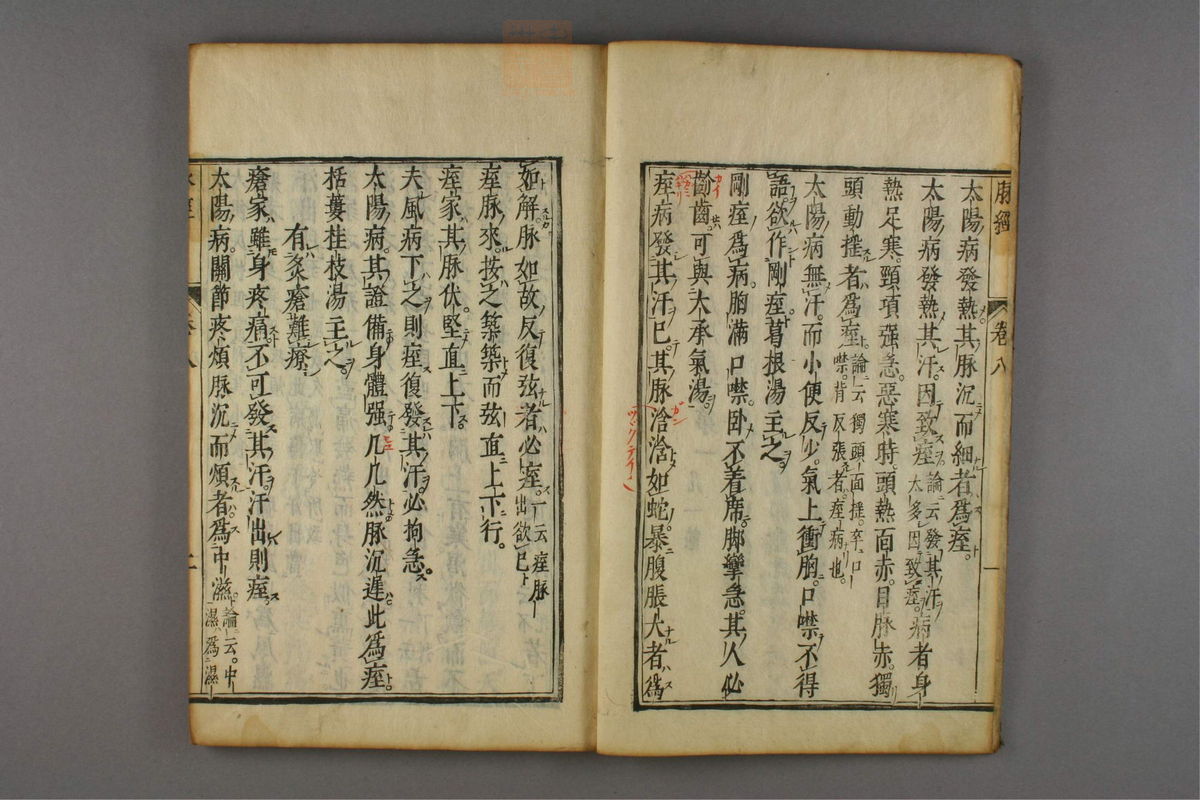 脉經
卷八
一
太陽病發熱其脉沉而細者爲痓。
太陽病發熱其汗。因致痓論云發其汗太多因致痓。病者身
熱足寒。頸項强急。惡寒時。頭熱面赤。目脉赤。獨
頭動揺者爲痓。論云獨頭面揺。卒口噤。背反張者。痓病也。
太陽病無汗。而小便反少。氣上衝胸。口噤不得
語。欲作剛痓。葛根湯主之
剛痓爲病。胸滿口噤。卧不着席。脚攣急。其人必
齘齒。可與大承氣湯。
痓病發其汗已。其脉浛浛如蛇。暴腹脹大者爲
如解。脉如故反復弦者必痓。一云痓脉出欲已
痓脉來。按之築築而弦直上下行。
痓家其脉伏堅直上下。
夫風病下之則痓復發其汗。必拘急。
太陽病。其證備身體强几几然脉沉遲此爲痓。
栝蔞桂枝湯主之。
有灸瘡難療
瘡家雖身疼痛不可發其汗。汗出則痓。
太陽病。關節疼煩脉沉而煩者爲中濕。論云。中濕爲濕